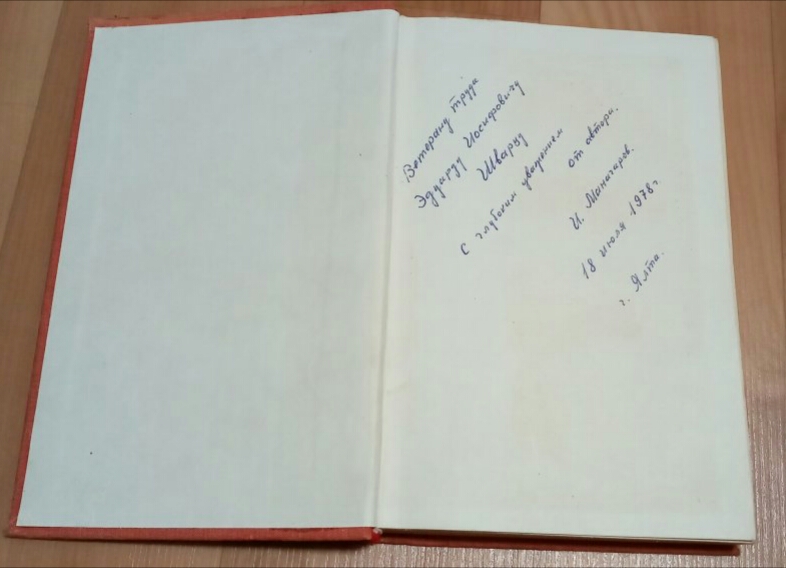 Ветерану труда
Эдуарду Иосифовичу
Шварцу
с глубоким уважением
от автора.
И. Манагаров.
18 июля 1978г.
г. Ялта.